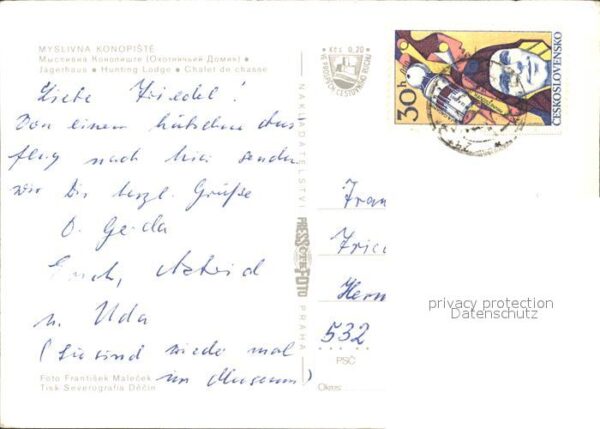 MYSLIVNA KONOPIŠTĚ
Мысливна Конопиште (Охотничий Домик) •
Jägerhaus • Hunting Lodge • Chalet de chasse
Liebe Friedel!
Von einem hübschen Aus
flug nach hier senden
wir Dir herzl. Grüße
O. Gerda
Erich, Astrid
u. Uda
(Sie sind wieder mal
im Museum)
Foto František Maleček
Tisk Severografia Děčín
NAKLADATELSTVÍ
PRESSFOTO
PRAHA
Kčs 0,20
30h
ČESKOSLOVENSKO
Fran
Fried
Herm
532
PSČ
Okres
privacy protection
Datenschutz